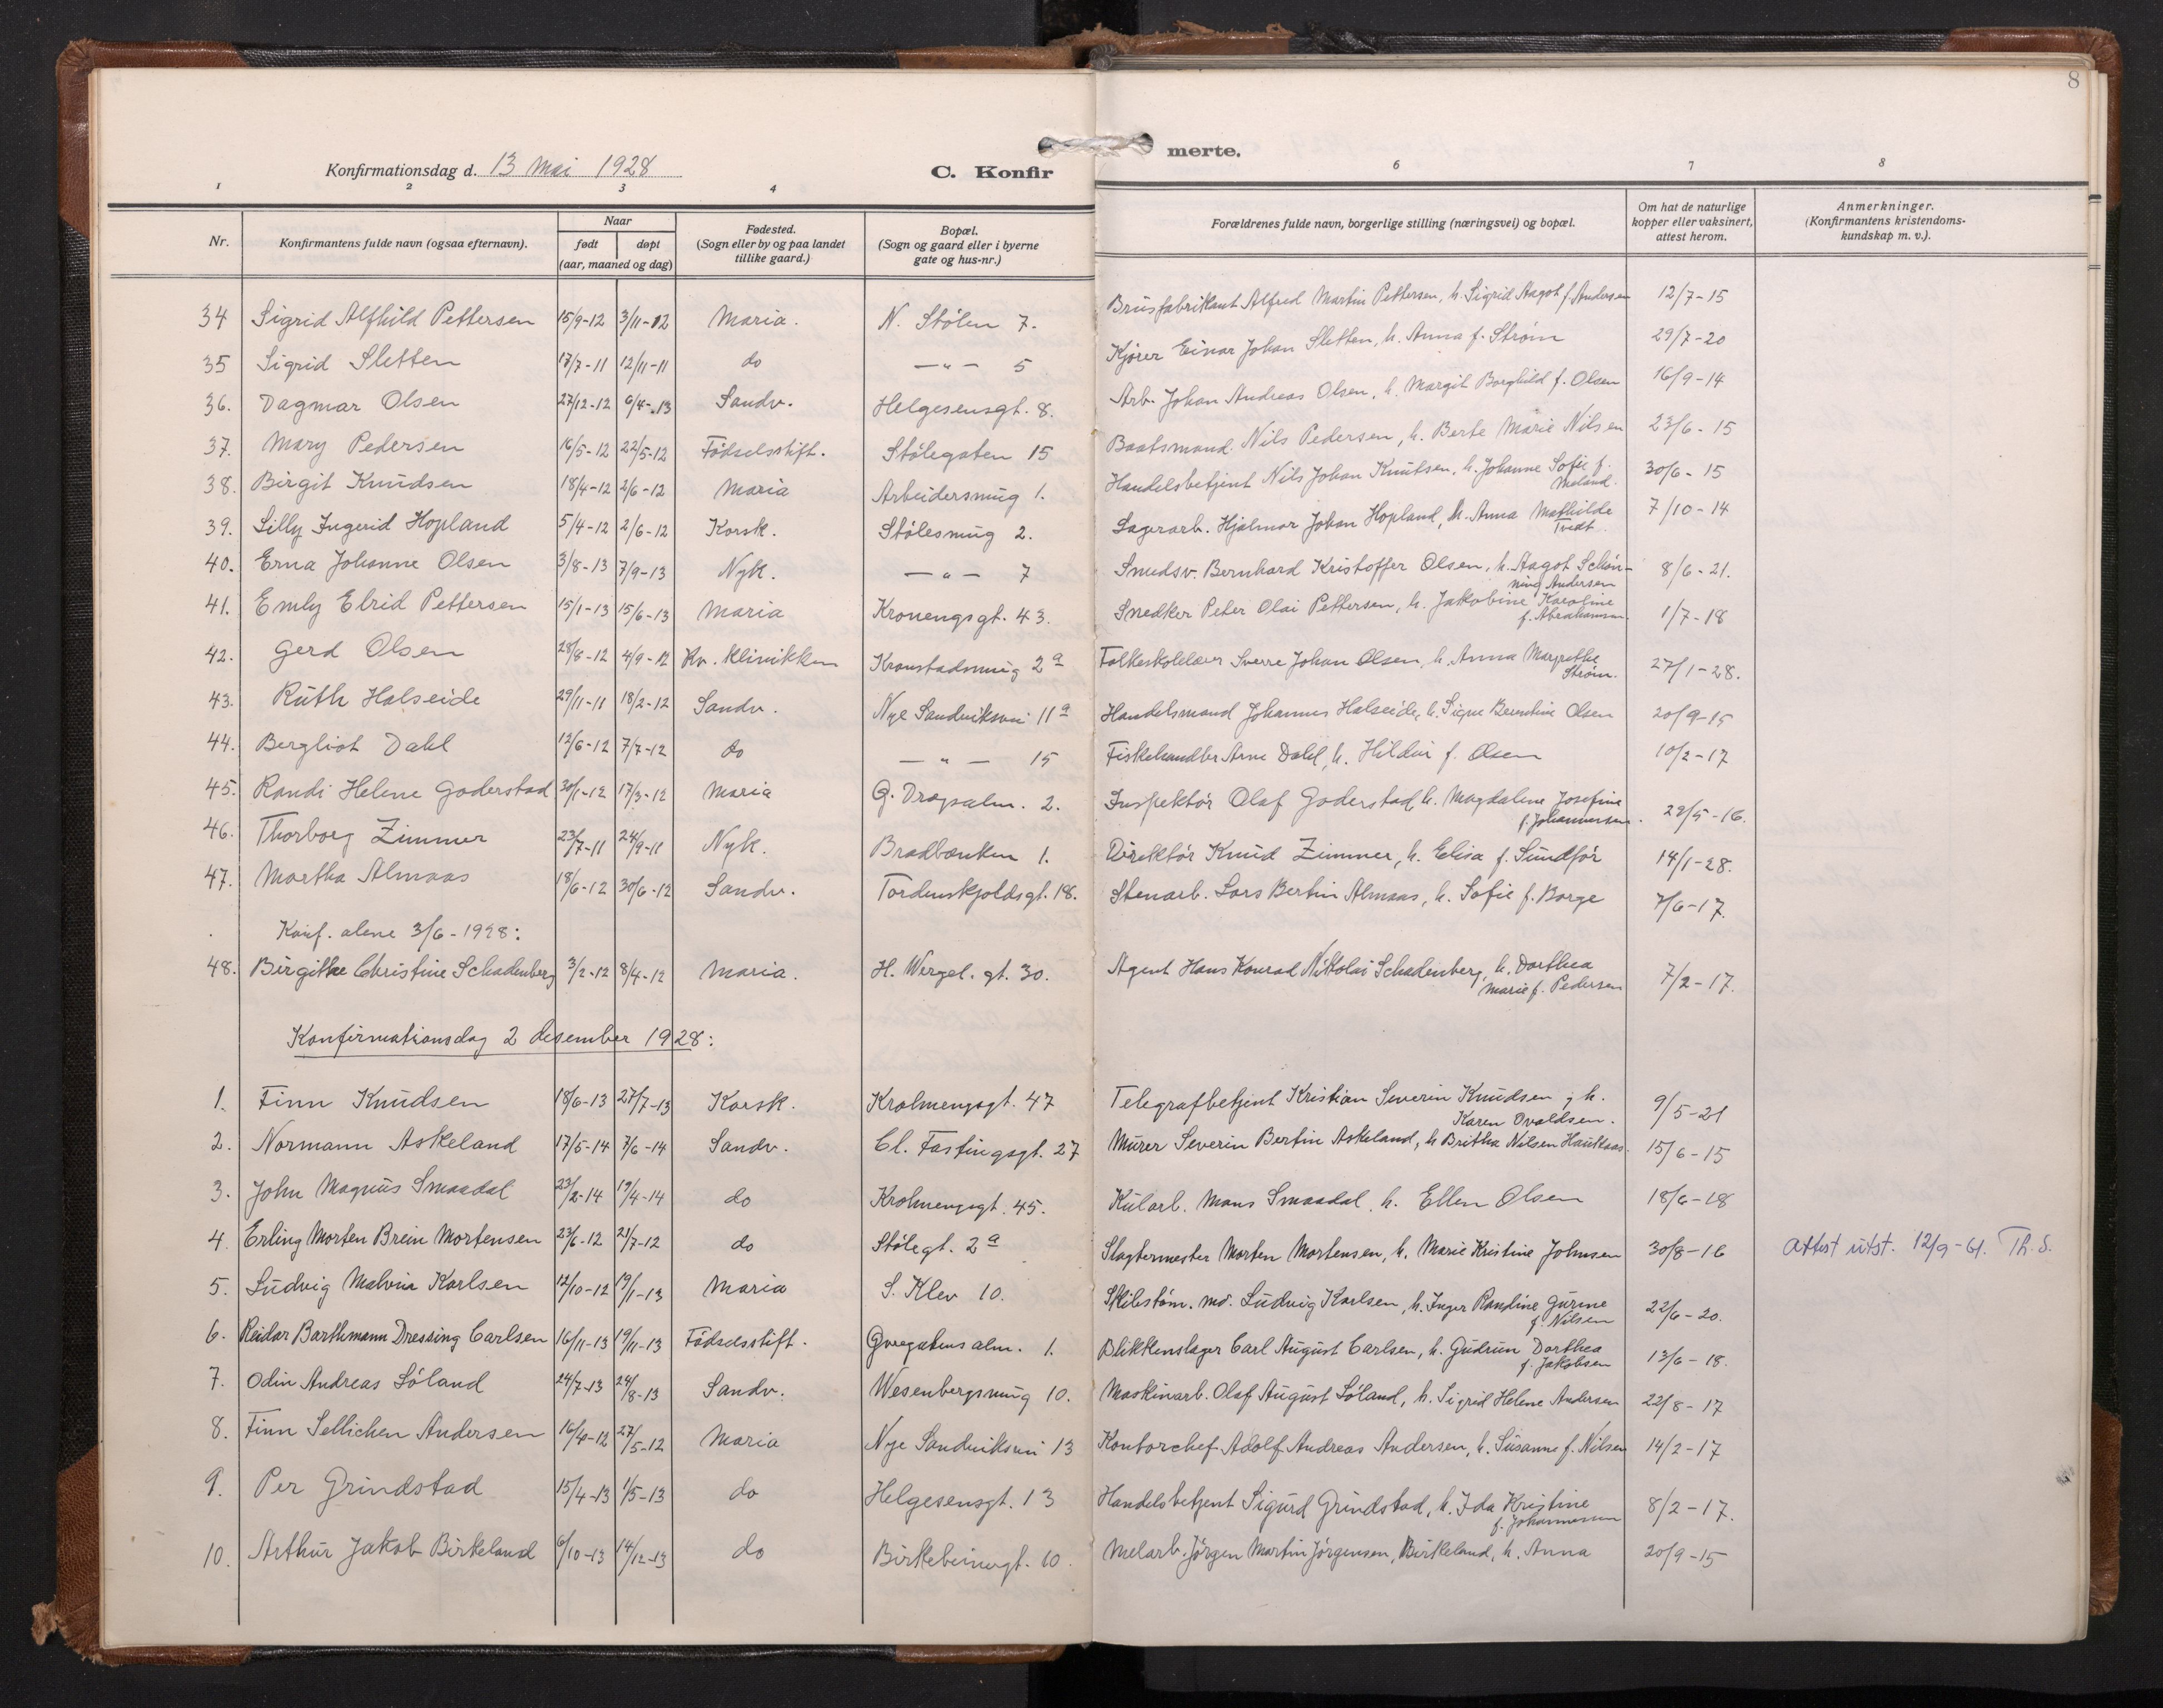 8
Konfirmationsdag d. 13 Mai 1928
C. Konfir
merte.
1 2 3 4 6 7 8
Nr. Konfirmantens fulde navn (ogsaa efternavn). Naar født døpt (aar, maaned og dag) Fødested. (Sogn eller by og paa landet tillike gaard.) Bopæl. (Sogn og gaard eller i byerne gate og hus-nr.) Forældrenes fulde navn, borgerlige stilling (næringsvei) og bopæl. Om hat de naturlige kopper eller vaksinert, attest herom. Anmerkninger. (Konfirmantens kristendoms-kundskap m. v.).
34 Sigrid Alfhild Pettersen 15/9-12 3/11-12 Maria. N. Stölen 7. Brusfabrikant Alfred Martin Pettersen, h. Sigrid Aagot f. Andersen 12/7-15
35 Sigrid Sletten 17/7-11 12/11-11 do — " — 5 Kjörer Einar Johan Sletten, h. Anna f. Ström 29/7-20
36. Dagmar Olsen 27/12-12 6/4-13 Sandv. Helgesensgt. 8. Arb. Johan Andreas Olsen, h. Margit Borghild f. Olsen 16/9-14
37. Mary Pedersen 16/5-12 22/5-12 Födselsstift. Stölegaten 15 Baatsmand. Nils Pedersen, h. Berte Marie Nilsen 23/6-15
38. Birgit Knudsen 18/4-12 2/6-12 Maria Arbeidersmug 1. Handelsbetjent Nils Johan Knutsen, h. Johanne Sofie f. Meland. 30/6-15
39. Lilly Ingerid Hopland 5/4-12 2/6-12 Korsk. Stölesmug 2. Lagerarb. Hjalmar Johan Hopland, h. Anna Mathilde Tvedt. 7/10-14
40. Erna Johanne Olsen 3/8-13 7/9-13 Nyk. — " — 7 Smedsv. Bernhard Kristoffer Olsen, h. Aagot Schön-
ning Andersen 8/6-21.
41. Emly Elrid Pettersen 15/1-13 15/6-13 Maria Kronengsgt. 43. Snedker Peter Olai Pettersen, h. Jakobine Karoline
f. Abrahamsen. 1/7-18
42. Gerd Olsen 28/8-12 4/9-12 Kv. klinikken Kronstadsmug 2a Folkeskolelærer Sverre Johan Olsen, h. Anna Margrethe
Ström. 27/1-28.
43. Ruth Halseide 29/11-11 18/2-12 Sandv. Nye Sandviksvei 11a Handelsmand Johannes Halseide, h. Signe Berentine Olsen 20/9-15
44. Bergliot Dahl 12/6-12 7/7-12 do — " — 15 Fiskehandler Arne Dahl, h. Hildur f. Olsen 10/2-17
45. Randi Helene Goderstad 30/1-12 17/3-12 Maria Ö. Dregsalm. 2. Inspektör Olaf Goderstad, h. Magdalene Josefine
f. Johannessen. 29/5-16.
46. Thorborg Zimmer 23/7-11 24/9-11 Nyk. Bradbænken 1. Direktör Knud Zimmer, h. Elisa f. Sundför 14/1-28.
47. Martha Almaas 18/6-12 30/6-12 Sandv. Tordenskjoldsgt. 18. Stenarb. Lars Bertin Almaas, h. Sofie f. Borge 7/6-17.
Konf. alene 3/6-1928:
48. Birgithe Christine Schadenberg 3/2-12 8/4-12 Maria. H. Wergel. gt. 30. Agent Hans Konrad Nikolai Schadenberg, h. Dorthea
Marie f. Pedersen 7/2-17.
Konfirmationsdag 2 desember 1928:
1. Finn Knudsen 18/6-13 27/7-13 Korsk. Krohnengsgt. 47 Telegrafbetjent Kristian Severin Knudsen, h.
Karen Ovaldsen. 9/5-21
2. Normann Askeland 17/5-14 7/6-14 Sandv. Cl. Fastingsgt. 27 Murer Severin Bertin Askeland, h. Britha Nilsen Haukaas. 15/6-15
3. John Magnus Smaadal 23/2-14 19/4-14 do Krohnengsgt. 45. Kularb. Mons Smaadal h. Ellen Olsen 18/6-18
4. Erling Morten Brein Mortensen 23/6-12 21/7-12 do Stölegt. 2a Slagtermester Morten Mortensen, h. Marie Kristine Johnsen 30/8-16 Attest utst. 12/9-61. Th. S.
5. Ludvig Malvin Karlsen 12/10-12 19/1-13 Maria S. Klev 10. Skibstöm. md. Ludvig Karlsen, h. Inger Randine Gurine
f. Nilsen 22/6-20.
6. Reidar Barthmann Dressing Carlsen 16/11-13 19/11-13 Födselsstift. Øvregatens alm. 1. Blikkenslager Carl August Carlsen, h. Gudrun Dorthea
f. Jakobsen 13/6-18.
7. Odin Andreas Söland 24/7-13 24/8-13 Sandv. Wesenbergsmug 10. Maskinarb. Olaf August Söland, h. Sigrid Helene Andersen 22/8-17
8. Finn Sellichen Andersen 16/4-12 27/5-12 Maria Nye Sandviksvei 13 Kontorchef Adolf Andreas Andersen, h. Susanne f. Nilsen 14/2-17
9. Per Grindstad 15/4-13 1/5-13 do Helgesensgt. 13 Handelsbetjent Sigurd Grindstad, h. Ida Kristine
f. Johannessen 8/2-17.
10. Arthur Jakob Birkeland 6/10-13 14/12-13 do Birkebeinergt. 10. Melarb. Jörgen Martin Jörgensen, Birkeland, h. Anna 20/9-15